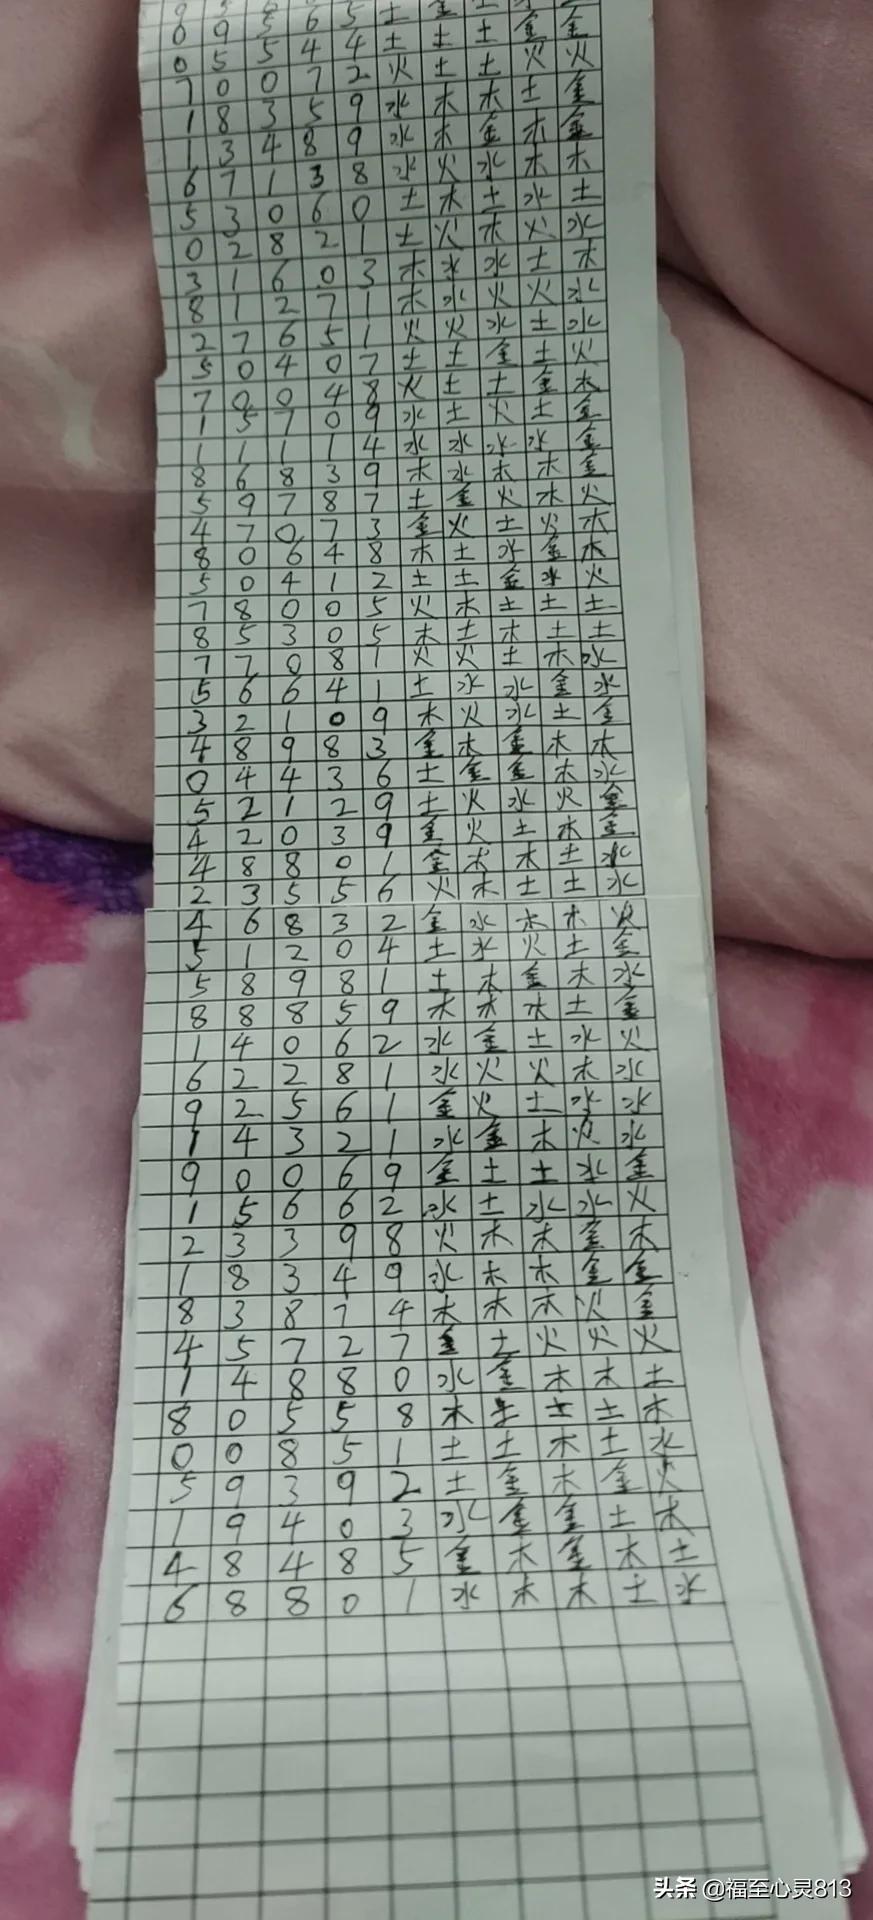 0 9 5 6 5 土 金 土 水 土
0 5 5 4 4 土 土 土 金 金
7 0 0 7 2 火 土 土 火 火
1 8 3 5 9 水 木 木 土 金
1 3 4 8 9 水 木 金 木 金
6 7 1 3 8 水 火 水 木 木
5 3 0 6 0 土 木 土 水 土
0 2 8 2 1 土 火 木 火 水
3 1 6 0 3 木 水 水 土 木
8 1 2 7 1 木 水 火 火 水
2 7 6 5 1 火 火 水 土 水
5 0 4 0 7 土 土 金 土 火
7 0 0 4 8 火 土 土 金 木
1 5 7 0 9 水 土 火 土 金
1 1 1 1 4 水 水 水 水 金
8 6 8 3 9 木 水 木 木 金
5 9 7 8 7 土 金 火 木 火
4 7 0 7 3 金 火 土 火 木
8 0 6 4 8 木 土 水 金 木
5 0 4 1 2 土 土 金 水 火
7 8 0 0 5 火 木 土 土 土
8 5 3 0 5 木 土 木 土 土
7 7 0 8 1 火 火 土 木 水
5 6 6 4 1 土 水 水 金 水
3 2 1 0 9 木 火 水 土 金
4 8 9 8 3 金 木 金 木 木
0 4 4 3 6 土 金 金 木 水
5 2 1 2 9 土 火 水 火 金
4 2 0 3 9 金 火 土 木 金
4 8 8 0 1 金 木 木 土 水
2 3 5 5 6 火 木 土 土 水
4 6 8 3 2 金 水 木 木 火
5 1 2 0 4 土 水 火 土 金
5 8 9 8 1 土 木 金 木 水
8 8 8 5 9 木 木 木 土 金
1 4 0 6 2 水 金 土 水 火
6 2 2 8 1 水 火 火 木 水
9 2 5 6 1 金 火 土 水 水
1 4 3 2 1 水 金 木 火 水
9 0 0 6 9 金 土 土 水 金
1 5 6 6 2 水 土 水 水 火
2 3 3 9 8 火 木 木 金 木
1 8 3 4 9 水 木 木 金 金
8 3 8 7 4 木 木 木 火 金
4 5 7 2 7 金 土 火 火 火
1 4 8 8 0 水 金 木 木 土
8 0 5 5 8 木 土 土 土 木
0 0 8 5 1 土 土 木 土 水
5 9 3 9 2 土 金 木 金 火
1 9 4 0 3 水 金 金 土 木
4 8 4 8 5 金 木 金 木 土
6 8 8 0 1 水 木 木 土 水
头条 @福至心灵813